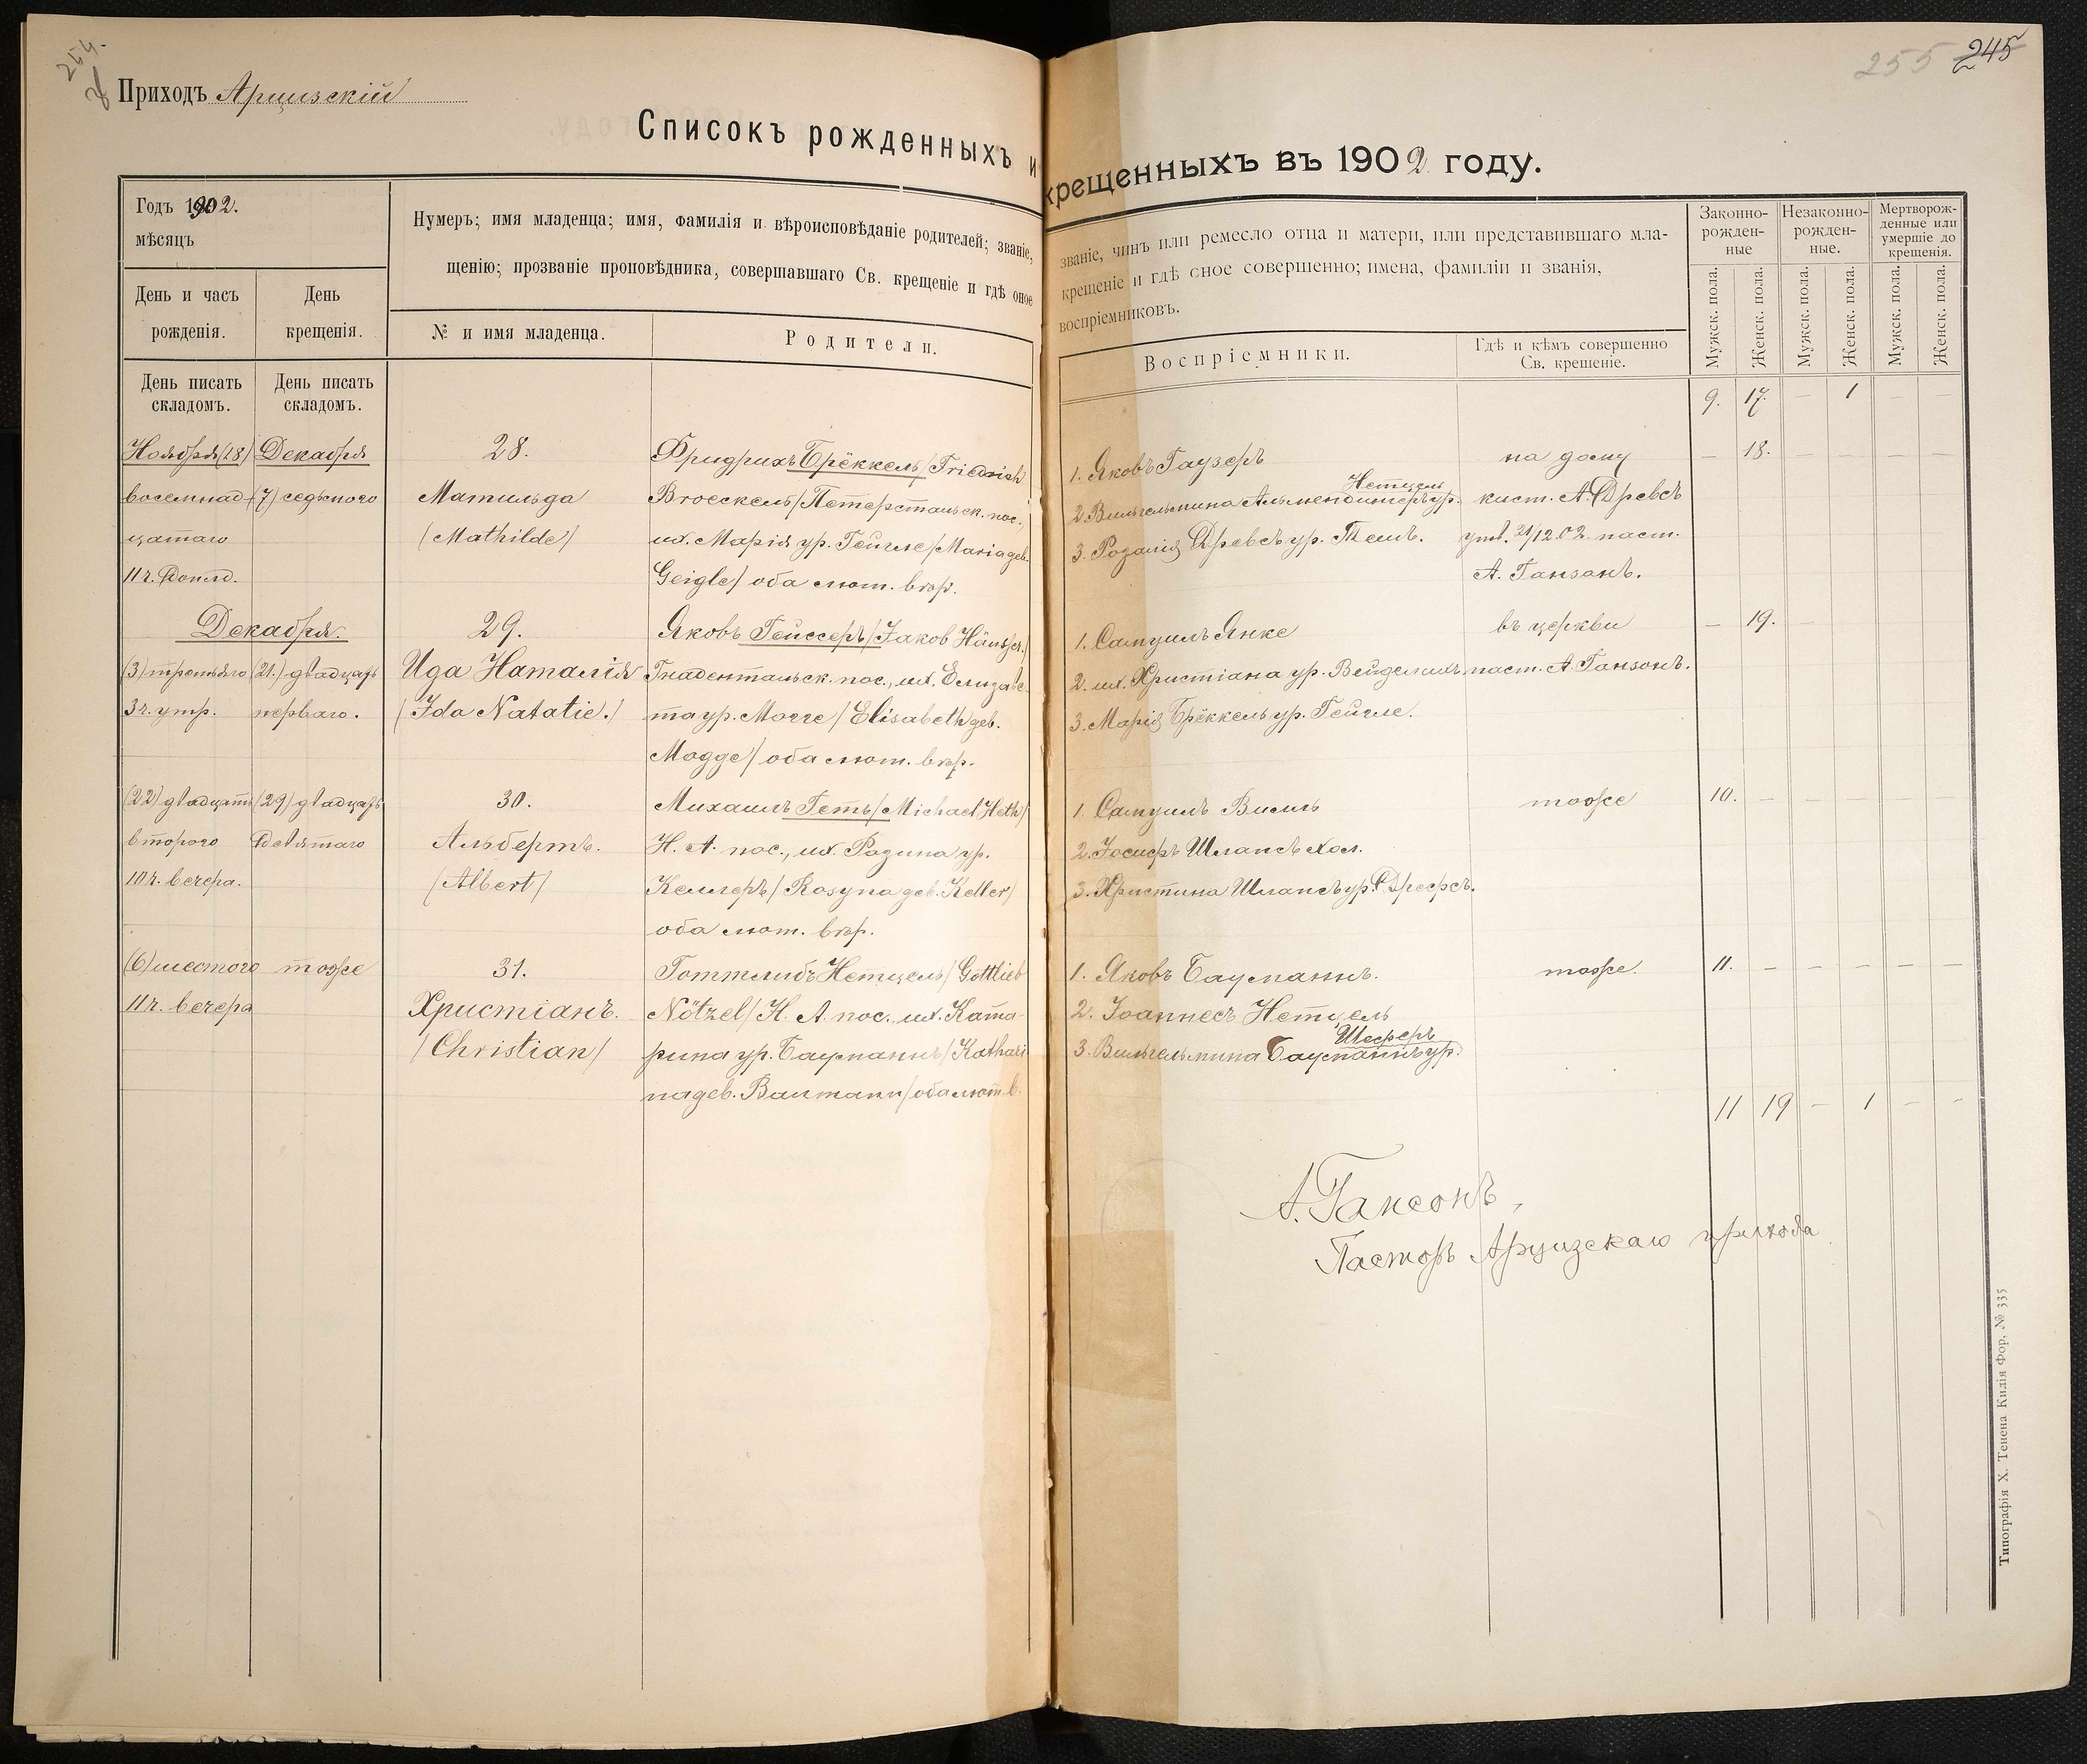 254.
Приходъ Арцизскій
255 245
Списокъ рожденныхъ и крещенныхъ въ 1902 году.
Годъ 1902.
мѣсяцъ
Нумеръ; имя младенца; имя, фамилія и вѣроисповѣданіе родителей; званіе,
щенію; прозваніе проповѣдника, совершавшаго Св. крещеніе и гдѣ оное
званіе, чинъ или ремесло отца и матери, или представившаго мла-
крещеніе и гдѣ оное совершенно; имена, фамиліи и званія,
воспріемниковъ.
День и часъ
рожденія.
День
крещенія.
№ и имя младенца.
Родители.
Воспріемники.
Гдѣ и кѣмъ совершенно
Св. крещеніе.
Законно-
рожден-
ные
Незаконно-
рожден-
ные.
Мертворож-
денные или
умершіе до
крещенія.
Мужск. пола.
Женск. пола.
Мужск. пола.
Женск. пола.
Мужск. пола.
Женск. пола.
День писать
складомъ.
День писать
складомъ.
9. 17. — 1 — —
Ноября (18)
восемнад-
цатаго
11 ч. 
Декабря
(7) седьмого
28.
Матильда
(Mathilde)
Фридрихъ Брёккель/Friedrich
Broeckel/Петерстальск. пос.,
их. Марія ур. Гейгле/Maria geb.
Geigle/ оба лют. вѣр.
1. Яковъ Гаузеръ
Нетцель
2. Вильгельмина Альмендингеръ ур.
3. Розалія Древсъ ур. Темъ.
на дому
кист. А. Древсъ
утв. 21/12.02. паст.
А. Ганзонъ.
— 18. — — — —
Декабря.
(3) третьяго
3 ч. утр.
(21.) двадцать
перваго.
29.
Ида Наталія
(Ida Natalie.)
Яковъ Гейссеръ/Jakob Häusser/
Гнадентальск. пос., их. Елизаве-
та ур. Могге/Elisabeth geb.
Mogge/ оба лют. вѣр.
1. Самуилъ Янке
2. их. Христіана ур. Вейделихъ
3. Марія Брёккель ур. Гейгле.
въ церкви
паст. А. Ганзонъ.
— 19. — — — —
(22) двадцать
второго
10 ч. вечера.
(29) двадцать
девятаго
30.
Альбертъ.
(Albert)
Михаилъ Гетъ/Michael Heth/
Н. А. пос., их. Розина ур.
Келлеръ/Rosyna geb. Keller/
оба лют. вѣр.
1. Самуилъ Вилль
2. Іосифъ Шлапсъ хол.
3. Христина Шлапсъ ур. Дрефсъ.
тоже
10. — — — — —
(6) шестого
11 ч. вечера
тоже
31.
Христіанъ.
(Christian)
Готтлибъ Нетцель/Gottlieb
Nötzel/Н. А. пос., их. Ката-
рина ур. Бауманнъ/Kathari
na geb. Baumann/ оба лют. в.
1. Яковъ Бауманнъ.
2. Іоаннесъ Нетцель
Шеферъ
3. Вильгельмина Бауманнъ ур.
тоже.
11. — — — — —
11 19 — 1 — —
А. Гансонъ,
Пасторъ Арцизскаго прихода
Типографія Х. Тенена Килія Фор, № 335